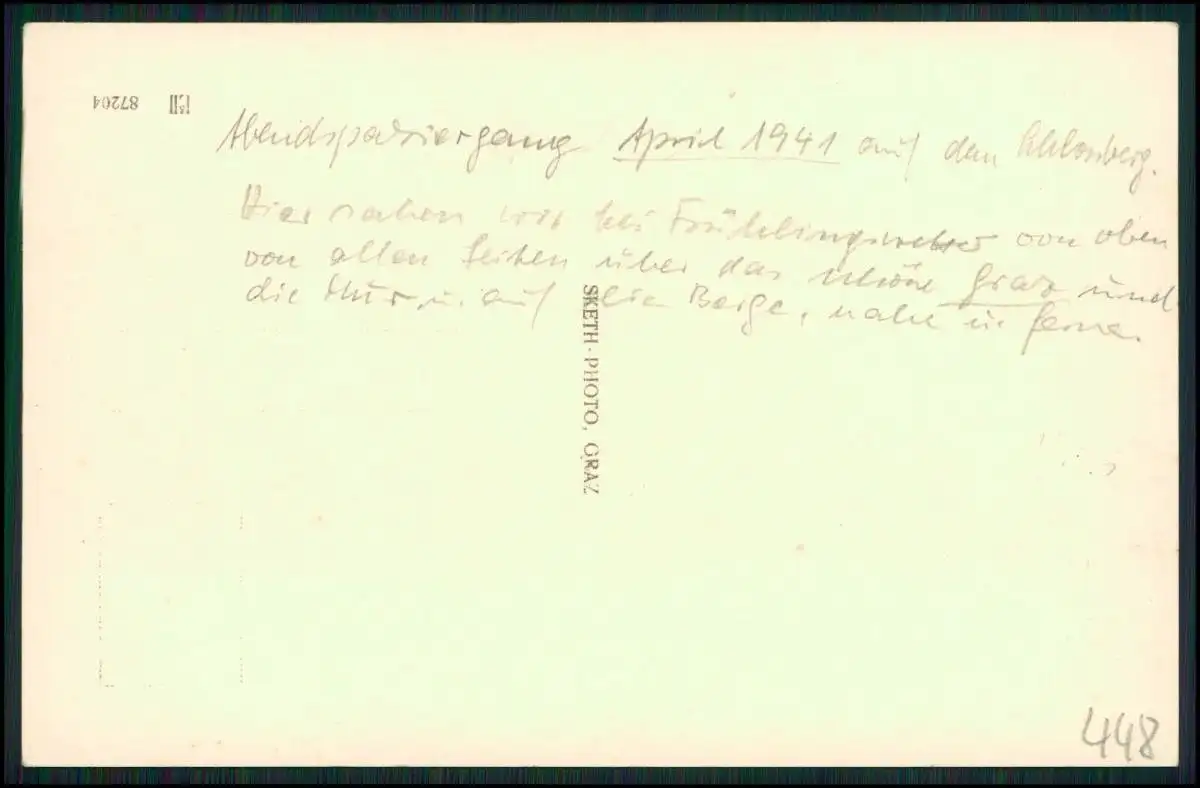 87204
Abendspaziergang April 1941 auf den Schlossberg.
Hier sahen wir bei Frühlingswetter von oben
von allen Seiten über das schöne Graz und
die Mur u. auf die Berge, nahe u. ferne.
SKETH-PHOTO, GRAZ
448